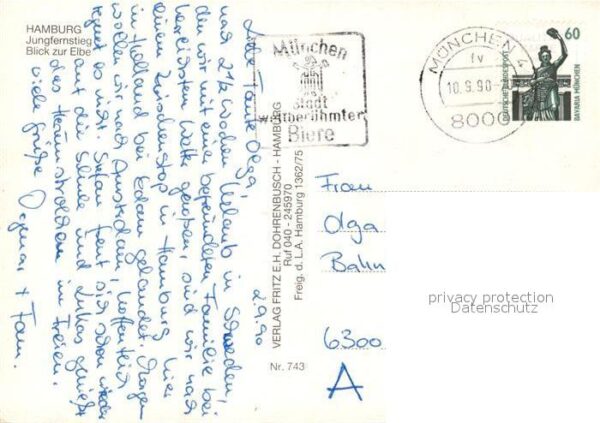 HAMBURG
Jungfernstieg
Blick zur Elbe
2.9.90
Liebe Tante Olga,
nach 2 1/2 Wochen Urlaub in Schweden,
den wir mit einer befreundeten Familie bei
herrlichstem Wetter genossen, sind wir nach
einem Zwischenstop in Hamburg hier
in Holland bei Edam gelandet. Morgen
wollen wir nach Amsterdam, hoffentlich
regnet es nicht. Stefan freut sich schon wieder
auf die Schule und Lukas genießt
das Herumstrolchen im Freien.
Viele Grüße Dagmar + Fam.
VERLAG FRITZ E.H. DOHRENBUSCH - HAMBURG
Ruf 040 - 245970
Freig. d. L.A. Hamburg 1362/75
Nr. 743
München
Stadt
weltberühmter
Biere
MÜNCHEN 4
fv
10.9.90
8000
60
DEUTSCHE BUNDESPOST
BAVARIA MÜNCHEN
Frau
Olga
Bahn
6300
A
privacy protection
Datenschutz